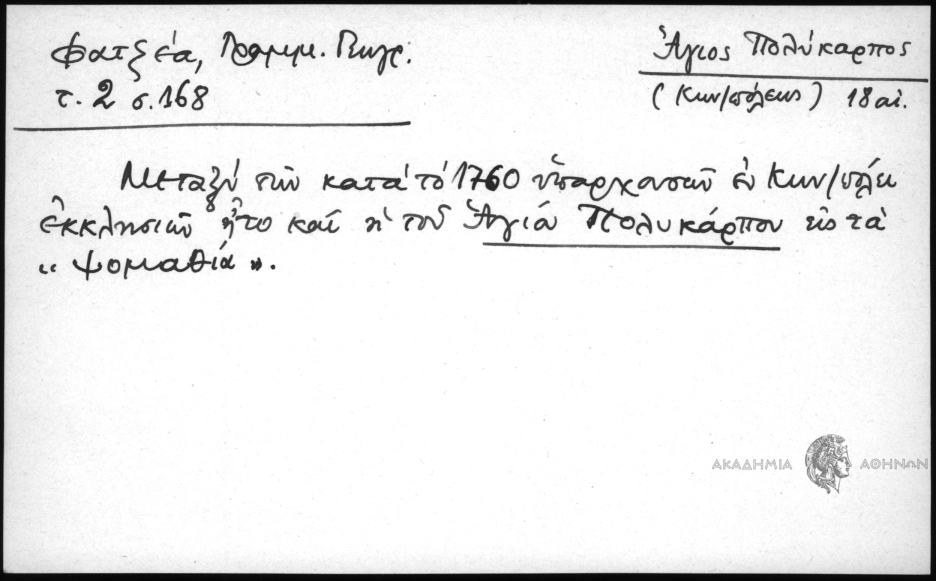 Φατζέα, Γραμμ. Γεωγρ.
τ. 2 σ. 168
Ἅγιος Πολύκαρπος
(Κων/πόλεως) 18 αἰ.
Μεταξύ τῶν κατά τό 1760 ὑπαρχουσῶν ἐν Κων/πόλει
ἐκκλησιῶν ἦτο καί ἡ τοῦ Ἁγίου Πολυκάρπου εἰς τά
“ Ψομαθιά ”.
ΑΚΑΔΗΜΙΑ ΑΘΗΝΩΝ